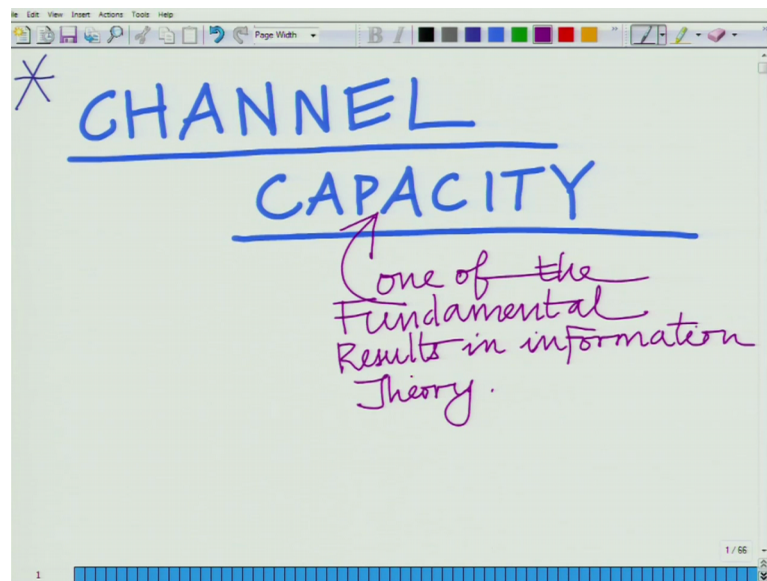 File Edit View Insert Actions Tools Help
Page Width
B I
* CHANNEL
CAPACITY
one of the
Fundamental
Results in information
Theory.
1 / 66
1